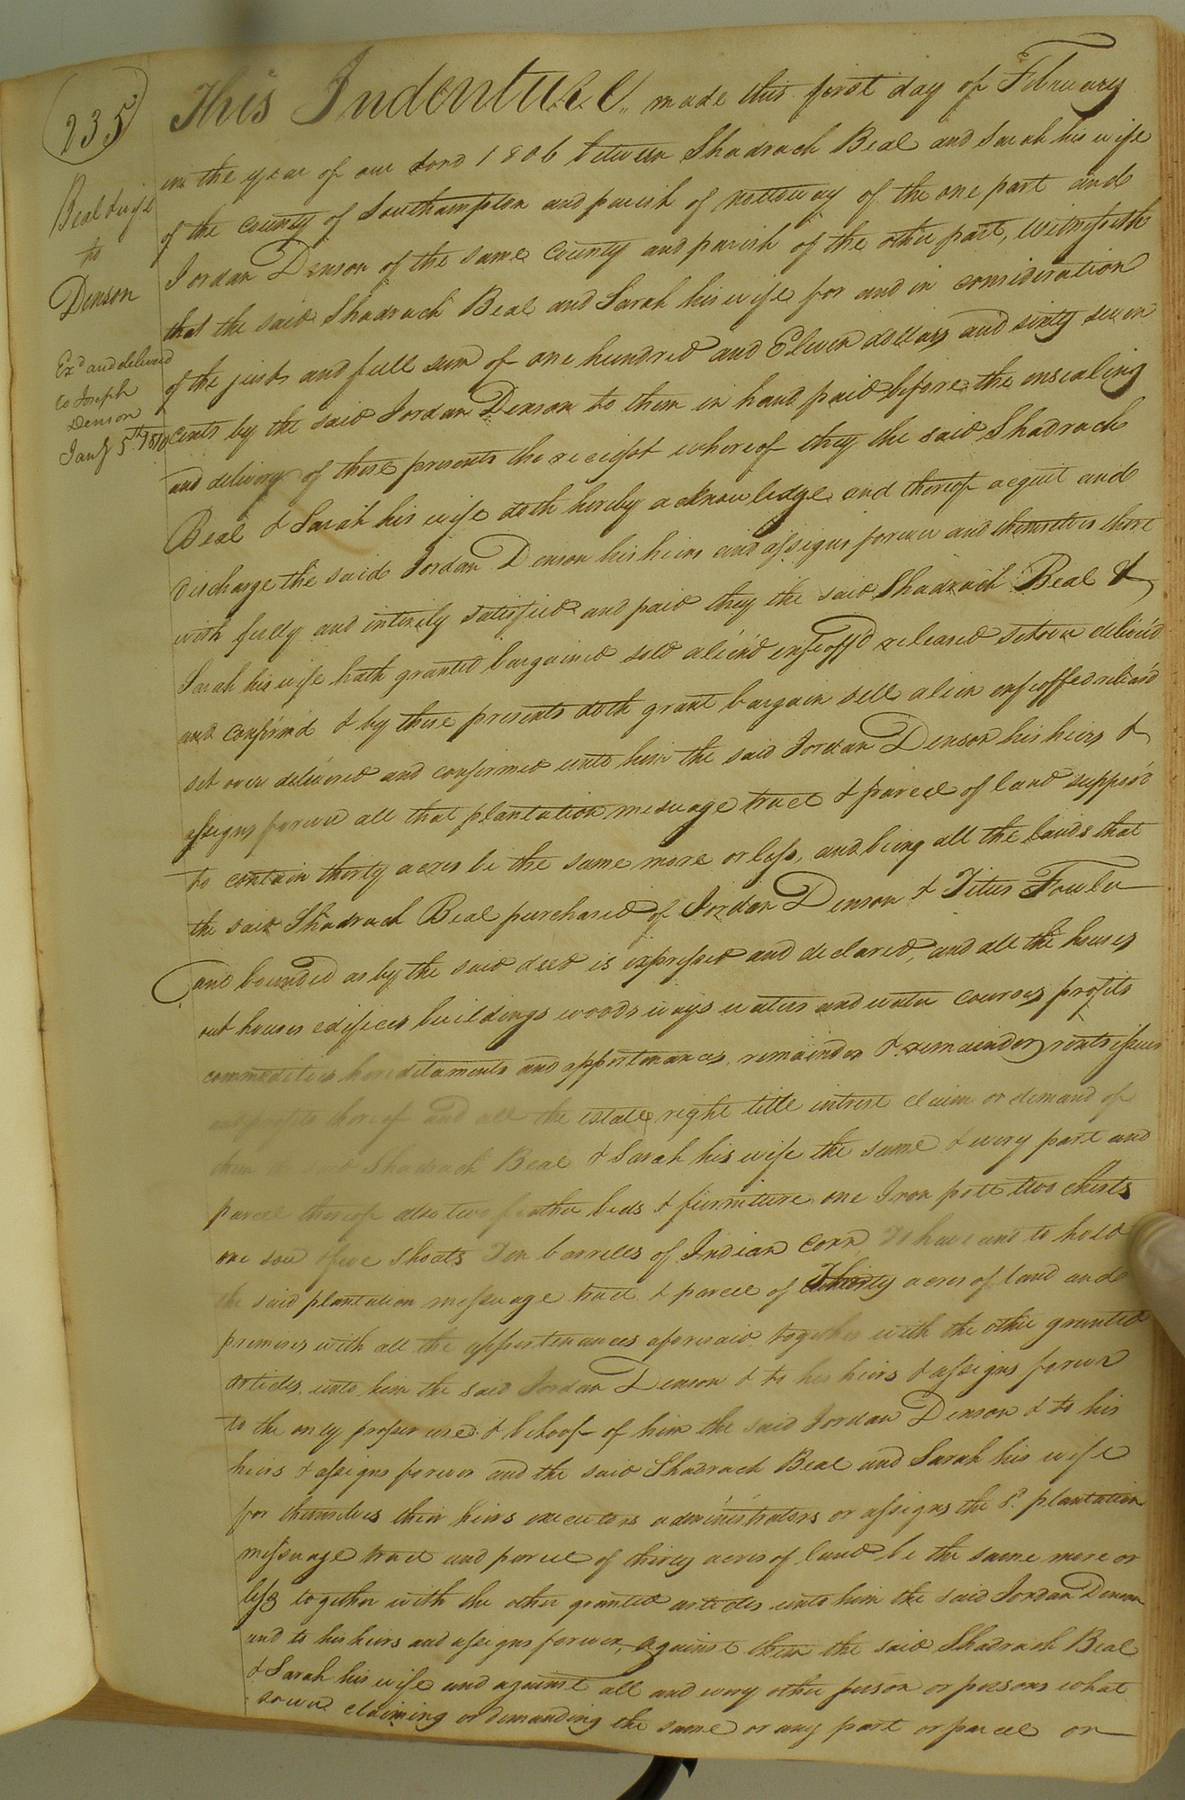 235
Beal & wife
to
Denson
Exd and deliverd
to Joseph
Denson
Jany 5th 1810
This Indenture, made this first day of February
in the year of our Lord 1806 between Shadrach Beal and Sarah his wife
of the county of Southampton and parish of nottoway of the one part and
Jordan Denson of the same County and parish of the other part, Witnesseth
that the said Shadrach Beal and Sarah his wife for and in consideration
of the just and full sum of one hundred and Eleven dollars and sixty seven
cents by the said Jordan Denson to them in hand paid before the ensealing
and delivery of these presents the receipt whereof they the said Shadrach
Beal & Sarah his wife doth hereby acknowledge and thereof acquit and
discharge the said Jordan Denson his heirs and assigns forever and themselves there
with fully and intirely satisfied and paid they the said Shadrach Beal &
Sarah his wife hath granted bargained sold alien'd enfeoff'd released setover deliver'd
and confirm'd & by these presents doth grant bargain sell alien enfeoffed releas'd
set over delivered and confirmed unto him the said Jordan Denson his heirs &
assigns forever all that plantation mesuage tract & parcel of land suppos'd
to contain thirty acres be the same more or less, and being all the lands that
the said Shadrach Beal purchased of Jordan Denson & Titus Fowler
and bounded as by the said deed is expressed and declared, and all the houses
out houses edifices buildings woods ways waters and water courses profits
commodities hereditaments and appertenances remainder & remainders rents issues
and profits thereof and all the estate right title intrest claim or demand of
them the said Shadrach Beal & Sarah his wife the same & every part and
parcel thereof also two feather beds & furniture one Iron pott two chests
one sow & five shoats Ten barrells of Indian corn, To have and to hold
the said plantation messuage tract & parcel of Thirty acres of land and
premises with all the appertenances aforesaid together with the other granted
articles unto him the said Jordan Denson & to his heirs & assigns forever
to the only proper use & behoof of him the said Jordan Denson & to his
heirs & assigns forever and the said Shadrach Beal and Sarah his wife
for themselves their heirs executors administrators or assigns the sd. plantation
messuage tract and parcel of thirty acres of land be the same more or
less together with the other granted articles unto him the said Jordan Denson
and to his heirs and assigns forever, against them the said Shadrach Beal
& Sarah his wife and against all and every other person or persons what
soever claiming or demanding the same or any part or parcel or